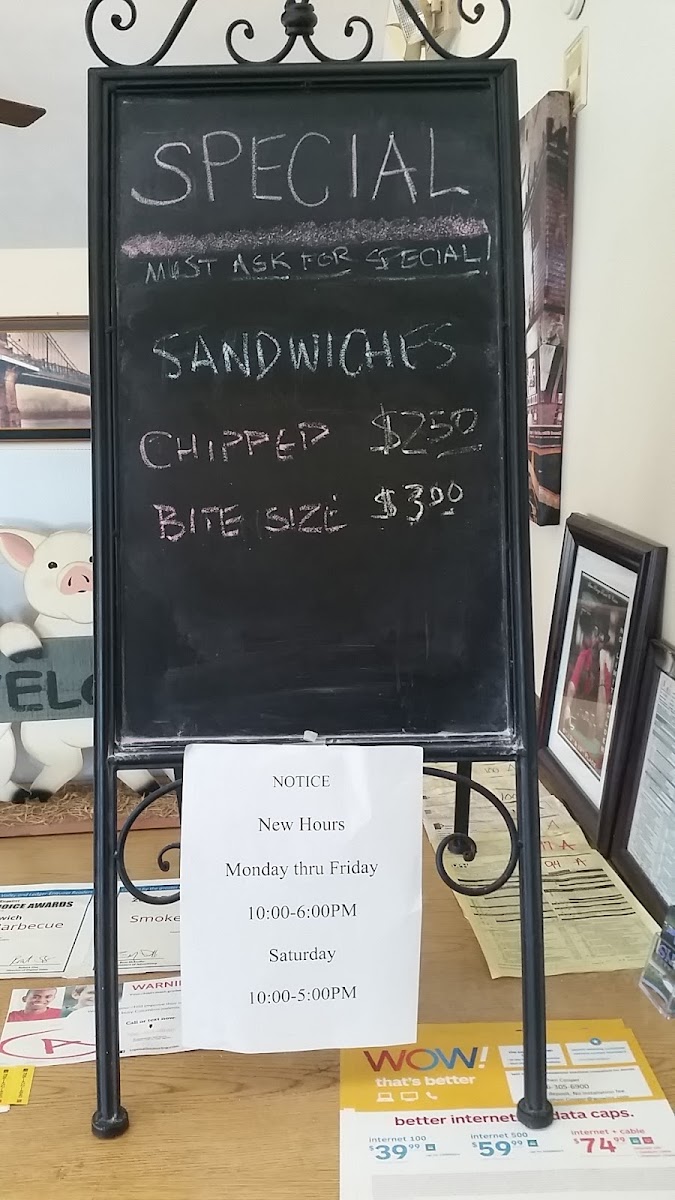 SPECIAL
MUST ASK FOR SPECIAL!
SANDWICHES
CHIPPED $2.50
BITE SIZE $3.00
NOTICE
New Hours
Monday thru Friday
10:00-6:00PM
Saturday
10:00-5:00PM
WELC
OICE AWARDS
wich
arbecue
Smoke
WARNI
Call or text now
A
94 A
WOW!
that's better
305-6900
better internet
data caps.
internet 100
$39.99
internet 500
$59.99
internet + cable
$74.99